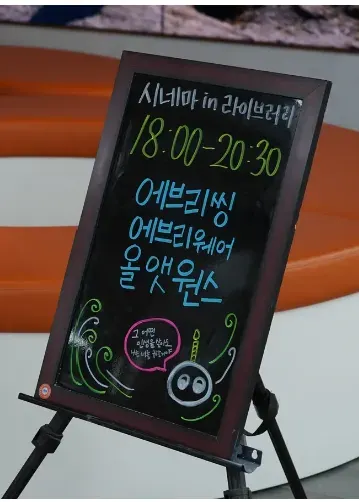 시네마 in 라이브러리
18:00-20:30
에브리씽
에브리웨어
올 앳 원스
그 어떤